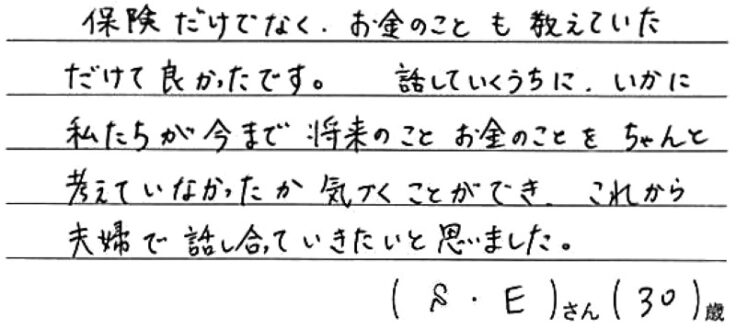 保険だけでなく、お金のことも教えていた
だけて良かったです。 話していくうちに、いかに
私たちが今まで将来のことお金のことをちゃんと
考えていなかったか気づくことができ、これから
夫婦で話し合っていきたいと思いました。
(S・E)さん(30)歳